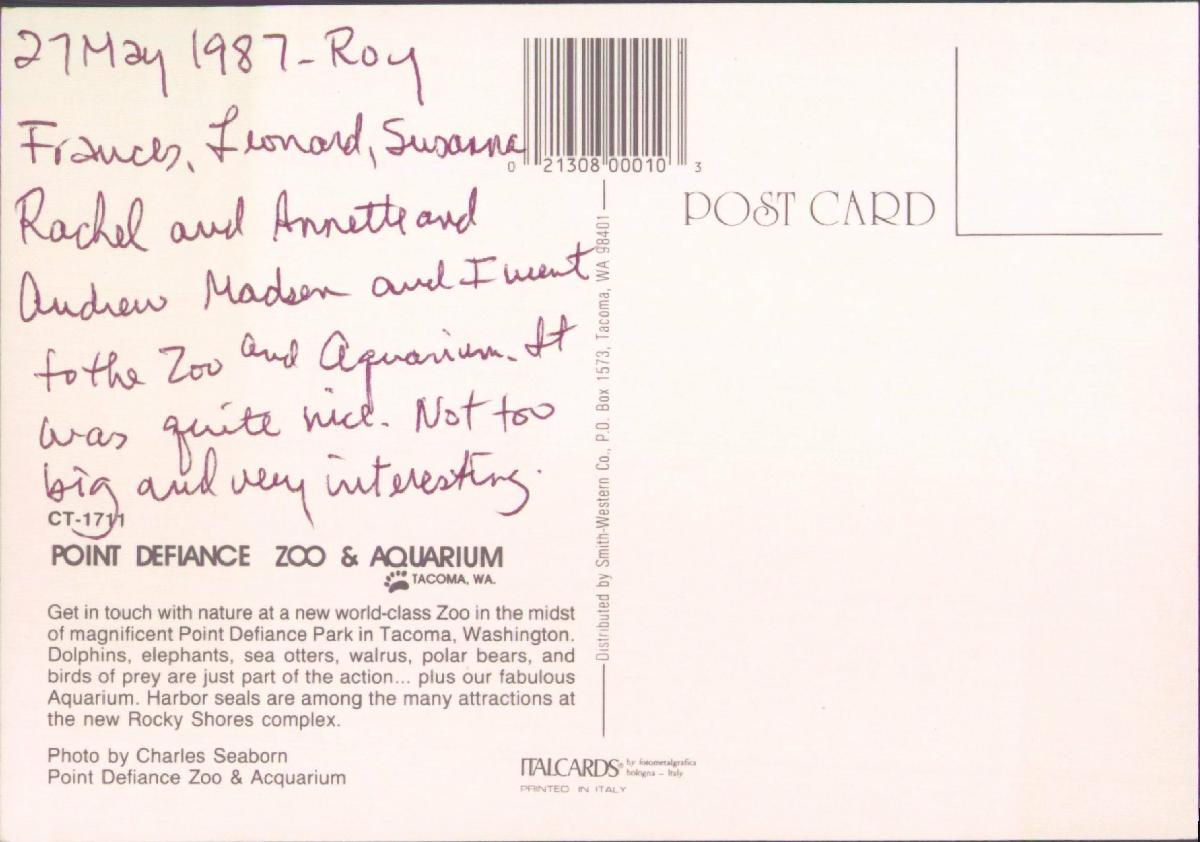 27 May 1987 - Roy
Frances, Leonard, Susanna
Rachel and Annette and
Andrew Madsen and I went
to the Zoo and Aquarium. It
was quite nice. Not too
big and very interesting.
CT-1711
POINT DEFIANCE ZOO & AQUARIUM
TACOMA, WA.
Get in touch with nature at a new world-class Zoo in the midst
of magnificent Point Defiance Park in Tacoma, Washington.
Dolphins, elephants, sea otters, walrus, polar bears, and
birds of prey are just part of the action... plus our fabulous
Aquarium. Harbor seals are among the many attractions at
the new Rocky Shores complex.
Photo by Charles Seaborn
Point Defiance Zoo & Acquarium
0 21308 00010 3
Distributed by Smith-Western Co., P.O. Box 1573, Tacoma, WA 98401
ITALCARDS® by fotometalgrafica
bologna - Italy
PRINTED IN ITALY
POST CARD